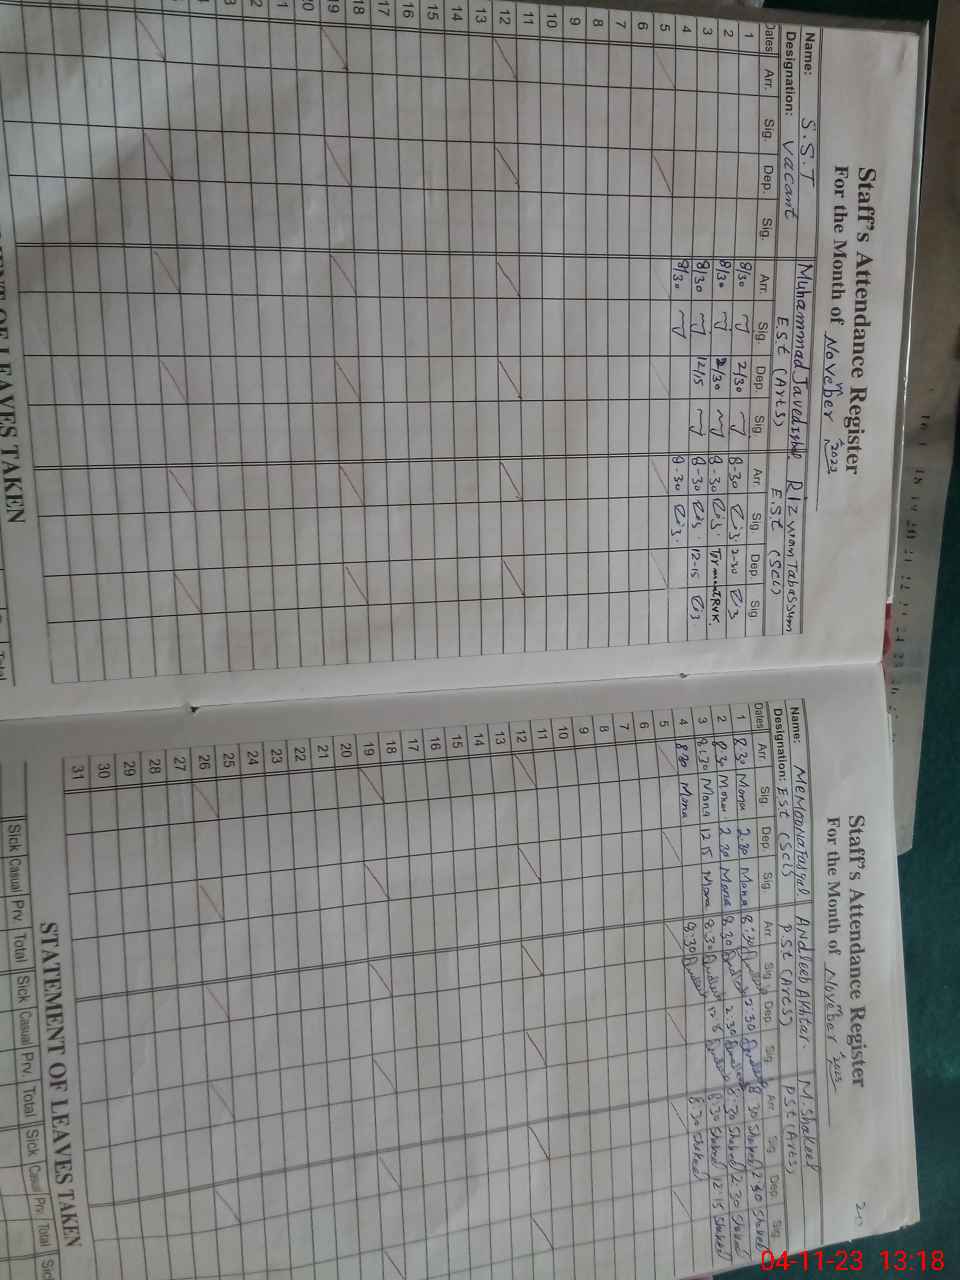 Staff's Attendance Register
For the Month of November 2023
Name: S.S.T Muhammad Javed Iqbal Rizwan Tabassum
Designation: Vacant E.St (Arts) E.St (Sci)
Dates Arr. Sig. Dep. Sig. Arr. Sig. Dep. Sig Arr. Sig. Dep. Sig
1 8/30 2/30 8-30 2-30
2 8/30 2/30 8-30
3 8/30 12/15 8-30 12-15
4 8/30 8-30
5
6
7
8
9
10
11
12
13
14
15
16
17
18
19
20
STATEMENT OF LEAVES TAKEN
Total
Staff's Attendance Register
For the Month of November 2023
Name: Andleeb Akhtar. M. Shakeel
Designation: EST (Sci) PST (Arts) PST (Arts)
Dates Arr. Sig. Dep. Sig. Arr. Sig Dep. Sig. Arr. Sig. Dep. Sig.
1 8 30 Mona 2.30 Mona 8:30 2:30 8:30 Shakeel 2:30 Shakeel
2 8 30 Mona 2 30 Mona 8.30 2:30 8:30 Shakeel 2:30 Shakeel
3 8:30 Mona 12 15 Mona 8.30 8:30 Shakeel 12:15 Shakeel
4 8 30 Mona 8:30 8:30 Shakeel
5
6
7
8
9
10
11
12
13
14
15
16
17
18
19
20
21
22
23
24
25
26
27
28
29
30
31
STATEMENT OF LEAVES TAKEN
Sick Casual Prv. Total Sick Casual Prv. Total Sick Casual Prv. Total Sic
04-11-23 13:18